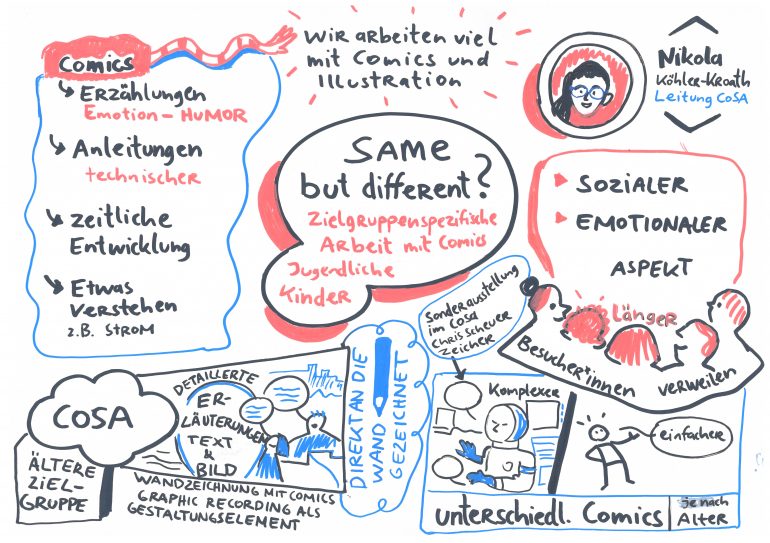 Comics
Erzählungen
Emotion – HUMOR
Anleitungen
technischer
zeitliche
Entwicklung
Etwas
verstehen
z.B. STROM
Wir arbeiten viel
mit Comics und
Illustration
Nikola
Köhler-Kroath
Leitung CoSA
SAME
but different?
Zielgruppenspezifische
Arbeit mit Comics
Jugendliche
Kinder
SOZIALER
EMOTIONALER
ASPEKT
LÄNGER
Besucher*innen
verweilen
COSA
ÄLTERE
ZIEL-
GRUPPE
DETAILLIERTE
ER-
LÄUTERUNGEN
TEXT
&
BILD
WANDZEICHNUNG MIT COMICS
GRAPHIC RECORDING ALS
GESTALTUNGSELEMENT
DIREKT AN DIE
WAND
GEZEICHNET
Sonderausstellung
im CoSA
Chris Scheuer
Zeicher
Komplexer
einfacher
unterschiedl. Comics
je nach
Alter